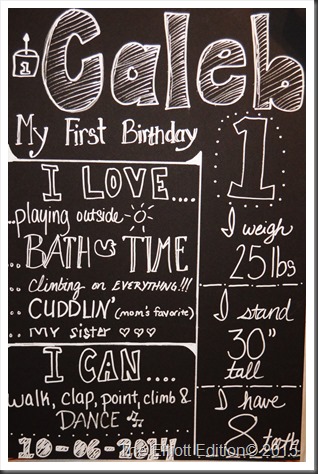 1
Caleb
My First Birthday
I LOVE....
..playing outside-
..BATH TIME
..climbing on EVERYTHING!!!
..CUDDLIN' (mom's favorite)
..MY sister ♡♡♡
I CAN....
walk, clap, point, climb &
DANCE
10-06-2014
1
I weigh
25 lbs
I stand
30"
tall
I have
8 teeth
Elliott Edition© 2015